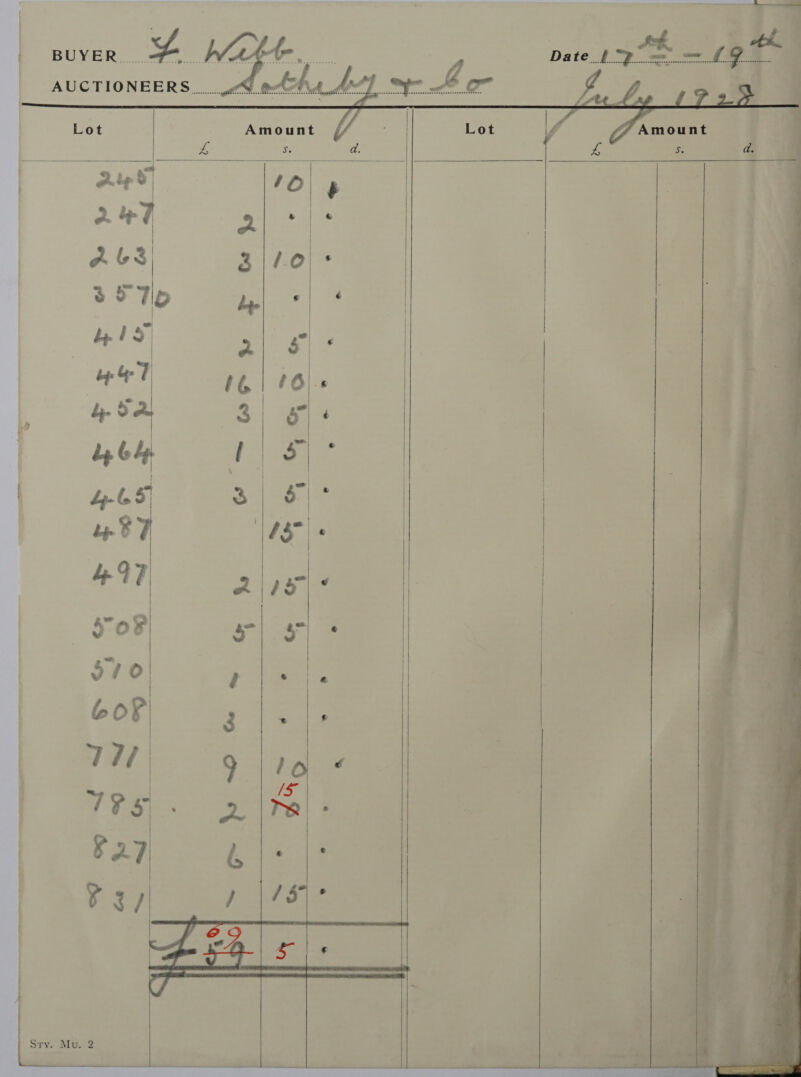 BUYER J. Witt. Date 17th – 19th
AUCTIONEERS Sotheby & Co July 1928
Lot Amount Lot Amount
£ s. d. £ s. d.
245 10 "
247 2 " "
263 3 10 "
357b 4 " "
415 2 5 "
447 16 10 "
452 3 5 "
464 1 5 "
465 3 5 "
487 15 "
497 2 15 "
508 5 5 "
510 1 " "
608 3 " "
771 9 10 "
15
785 . 2 10 "
827 6 " "
831 1 15 "
69
£ 59 5 "
Sty. Mu. 2